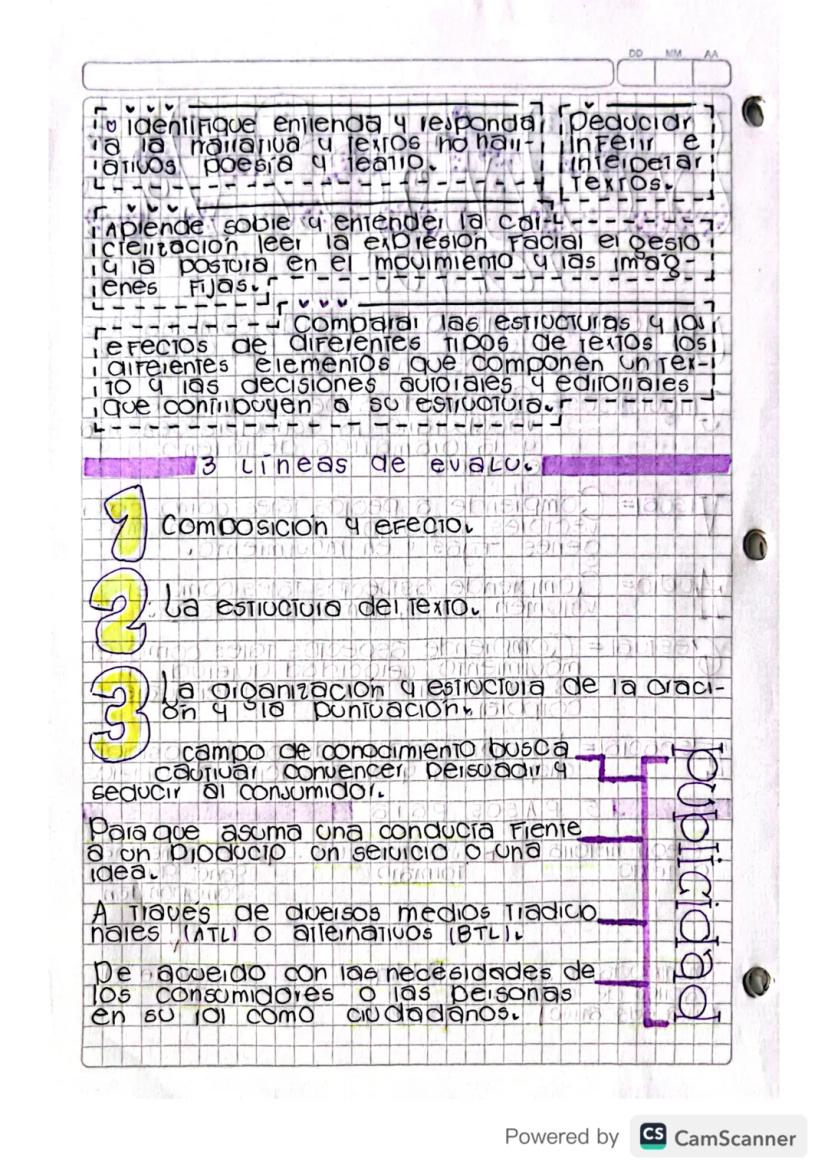 DD MM AA
identifique entienda y responda
a la narrativa y textos no narr-
ativos poesía y teatro.
Deducir
inferir e
interpetar
textos.
Aprende sobre y entender la car-
cterización leer la expresión facial el gesto
y la postura en el movimiento y las imag-
enes fijas.
Comparar las estructuras y los
efectos de diferentes tipos de textos los
diferentes elementos que componen un tex-
to y las decisiones autoriales y editoriales
que contribuyen a su estructura.
3 Líneas de evalu.
1 Composición y efecto.
2 La estructura del texto.
3 La organización y estructura de la oraci-
ón y la puntuación.
publicidad
campo de conocimiento busca
cautivar convencer persuadir y
seducir al consumidor.
Para que asuma una conducta frente
a un producto un servicio o una
idea.
A través de diversos medios tradicio
nales (ATL) o alternativos (BTL).
De acuerdo con las necesidades de
los consumidores o las personas
en su rol como ciudadanos.
Powered by CS CamScanner